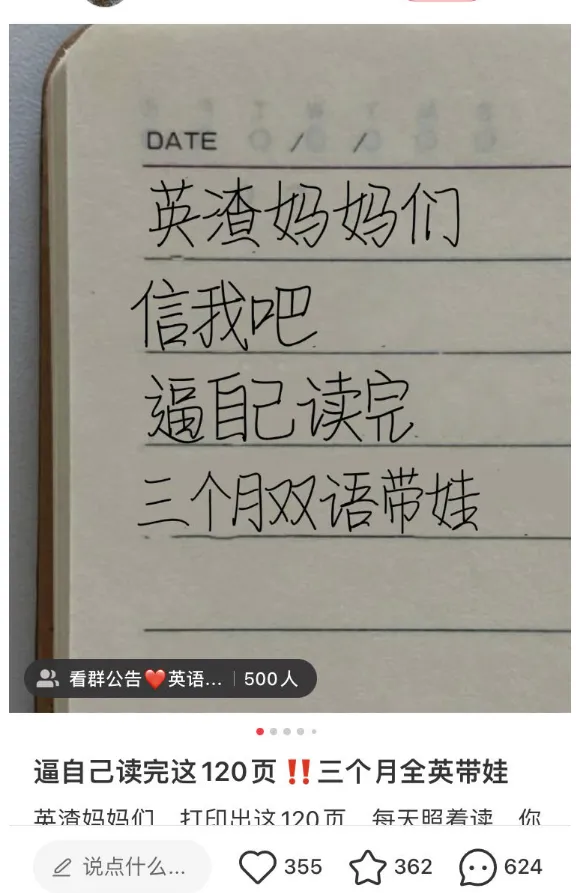 DATE / /
英渣妈妈们
信我吧
逼自己读完
三个月双语带娃
看群公告❤️英语... 500人
逼自己读完这120页‼️三个月全英带娃
英渣妈妈们 打印出这120页 每天照着读 你
说点什么... 355 362 624